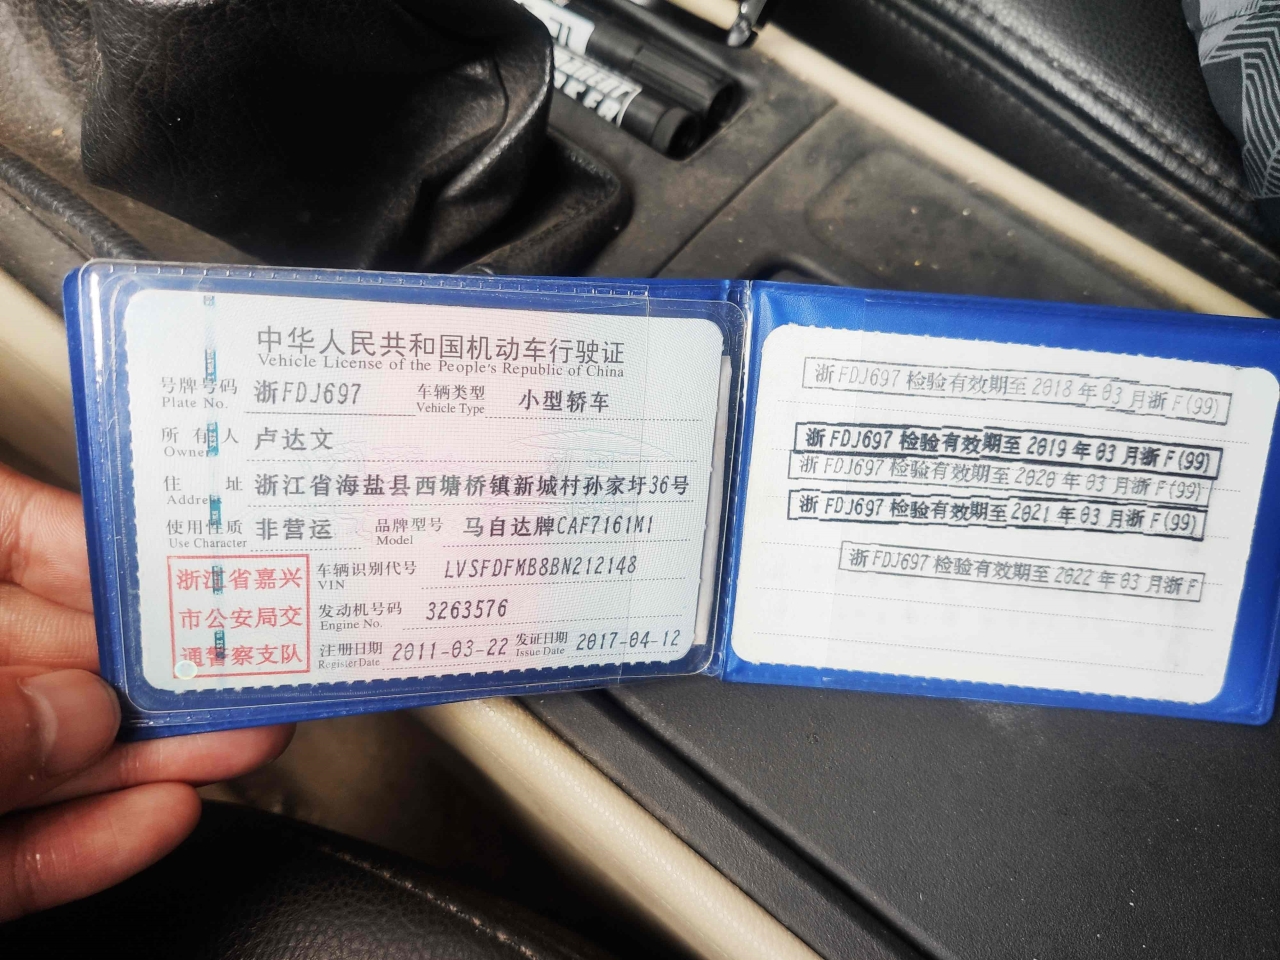 中华人民共和国机动车行驶证
Vehicle License of the People's Republic of China
号牌号码 浙FDJ697 车辆类型 小型轿车
Plate No. Vehicle Type
所有人 卢达文
Owner
住址 浙江省海盐县西塘桥镇新城村孙家圩36号
Address
使用性质 非营运 品牌型号 马自达牌CAF7161M1
Use Character Model
浙江省嘉兴
市公安局交
通警察支队
车辆识别代号 LVSFDFMB8BN212148
VIN
发动机号码 3263576
Engine No.
注册日期 2011-03-22 发证日期 2017-04-12
Register Date Issue Date
浙FDJ697 检验有效期至 2018 年 03 月浙 F(99)
浙FDJ697 检验有效期至 2019 年 03 月浙 F(99)
浙FDJ697 检验有效期至 2020 年 03 月浙 F(99)
浙FDJ697 检验有效期至 2021 年 03 月浙 F(99)
浙FDJ697 检验有效期至 2022 年 03 月浙 F